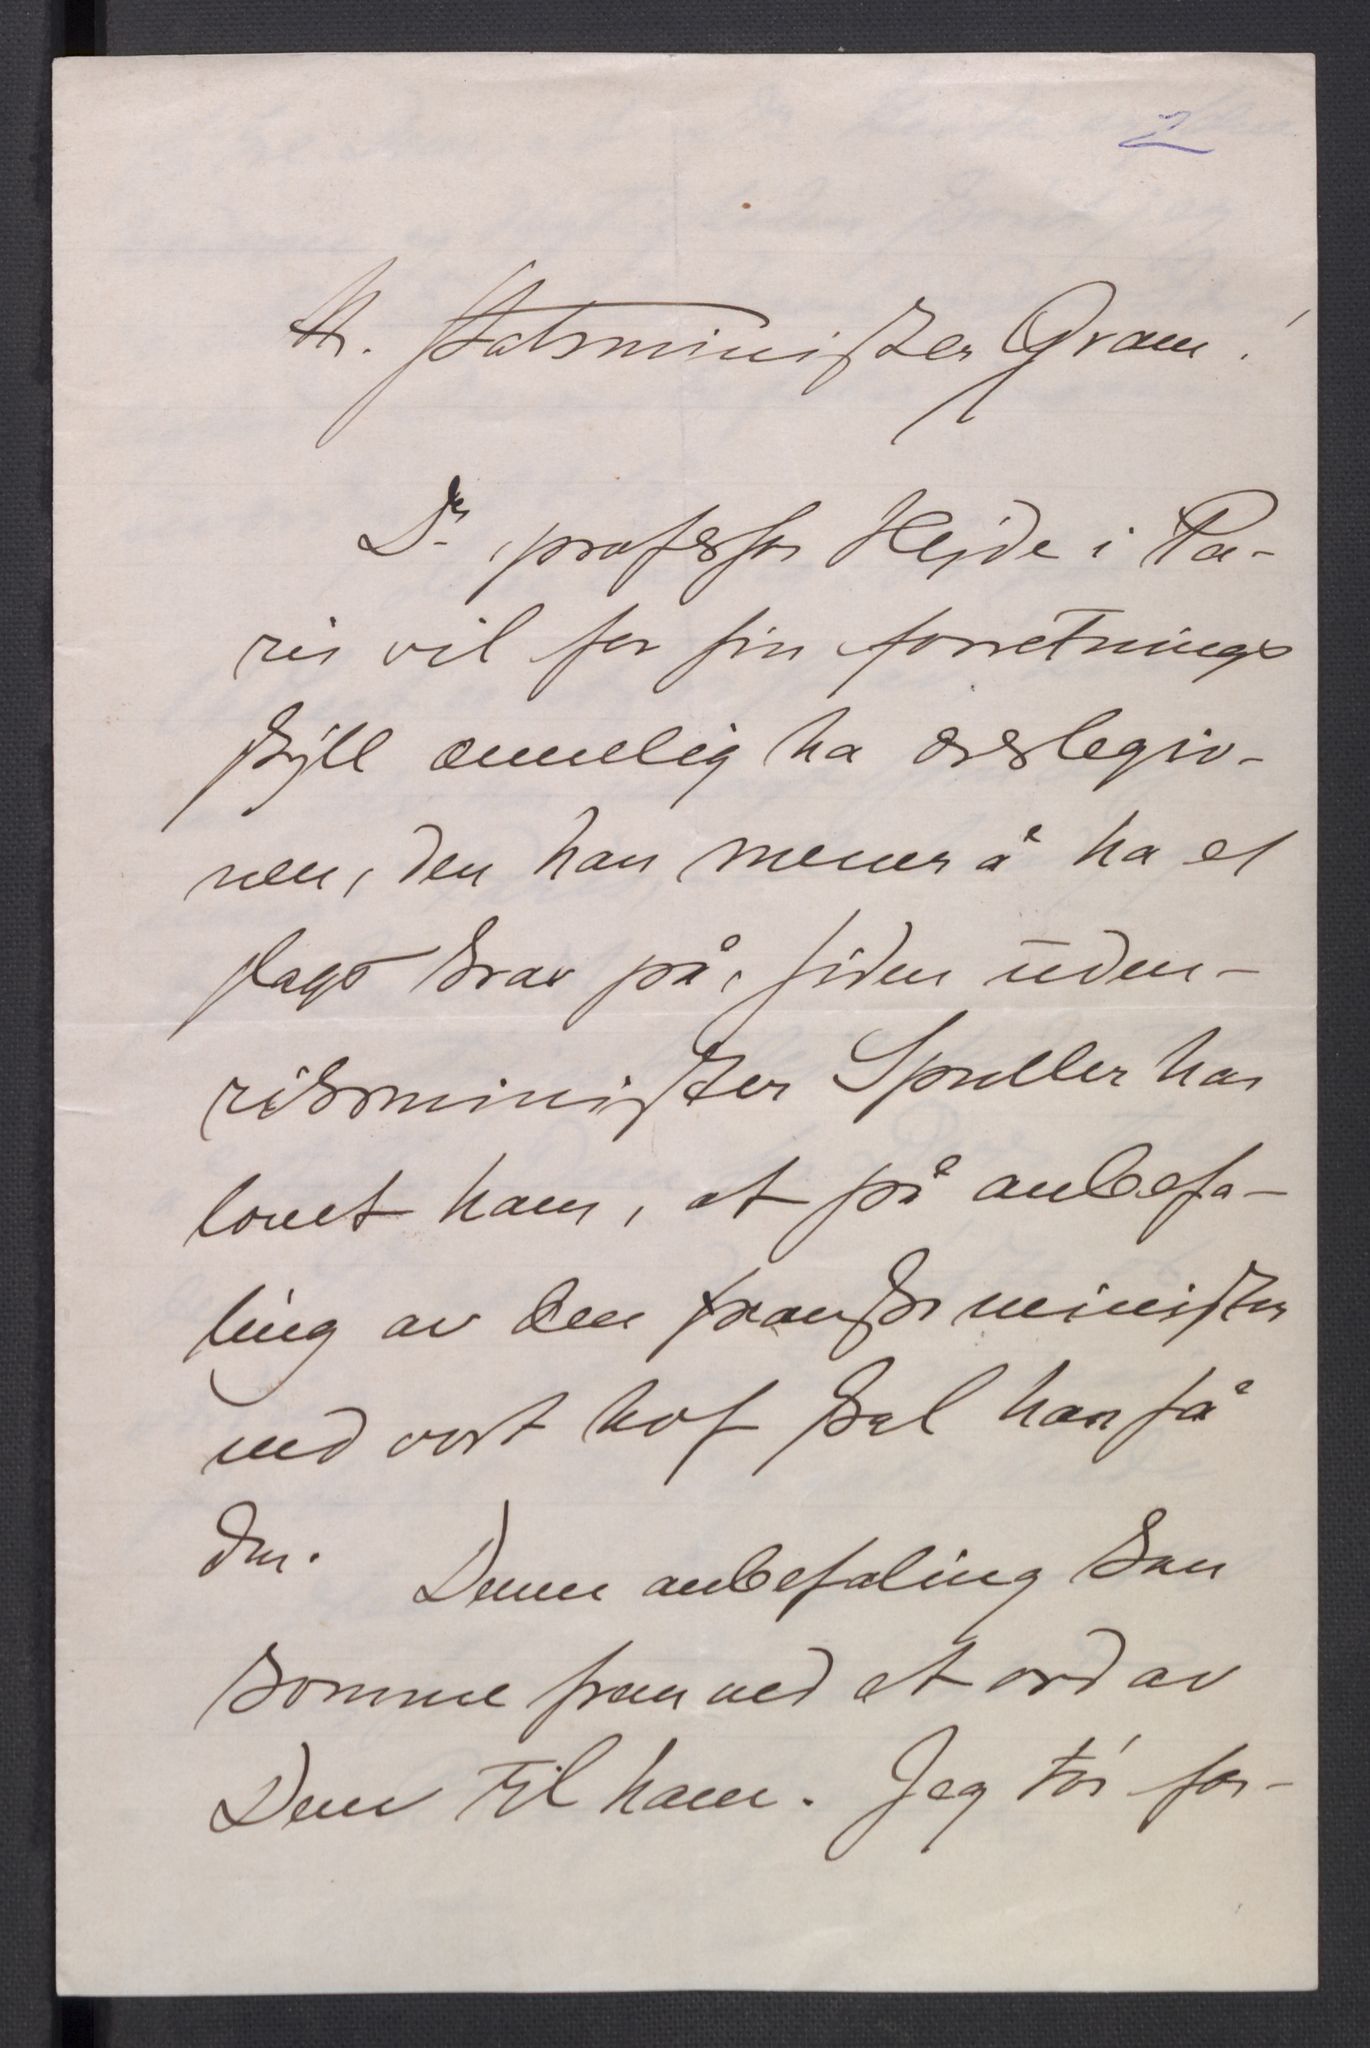 2
Hr. Statsminister Gram!
Dr, professor Hejde i Pa-
ris vil for sin forretnings
skyll ænnelig ha æreslegio-
nen, den han mener å ha et
slags krav på, siden uden-
riksminister Spuller har
lovet ham, at på anbefa-
ling av den franske minister
ved vort hof skal han få
den. Denne anbefaling kan
komme fram ved et ord av
Dem til ham. Jeg tør for-